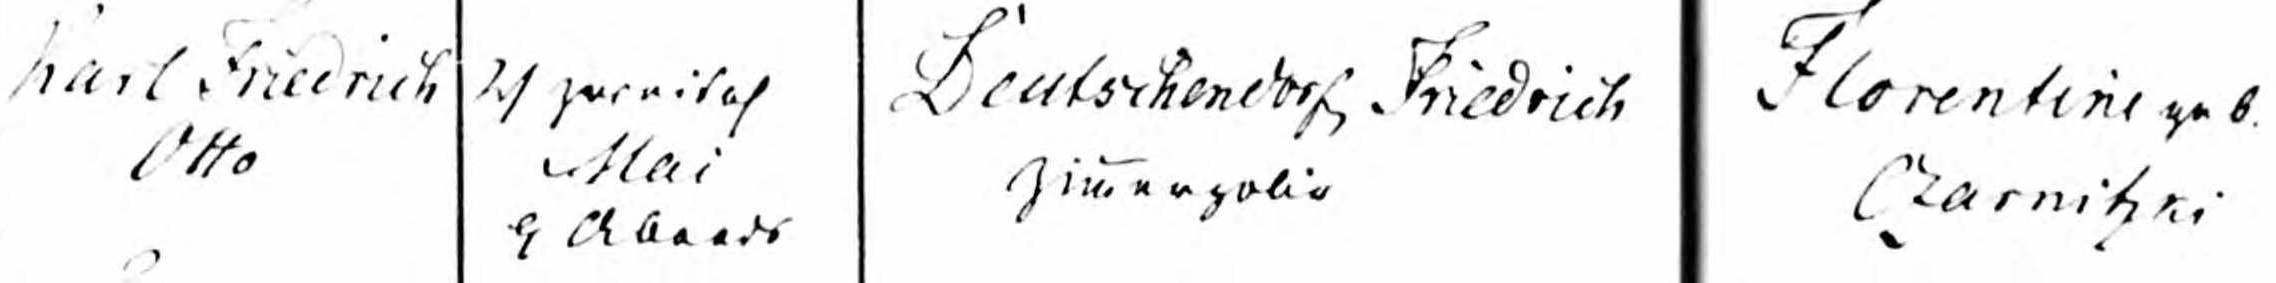 Karl Friedrich
Otto
2/
Mai
9 Abends
Deutschendorf, Friedrich
Zim̄erpolir
Florentine geb.
Czarnitzki